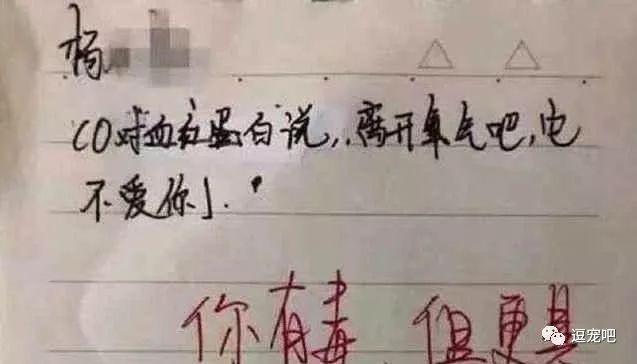 杨
CO对血红蛋白说，离开氧气吧，它
不爱你」.
你有毒，但更是
逗宠吧